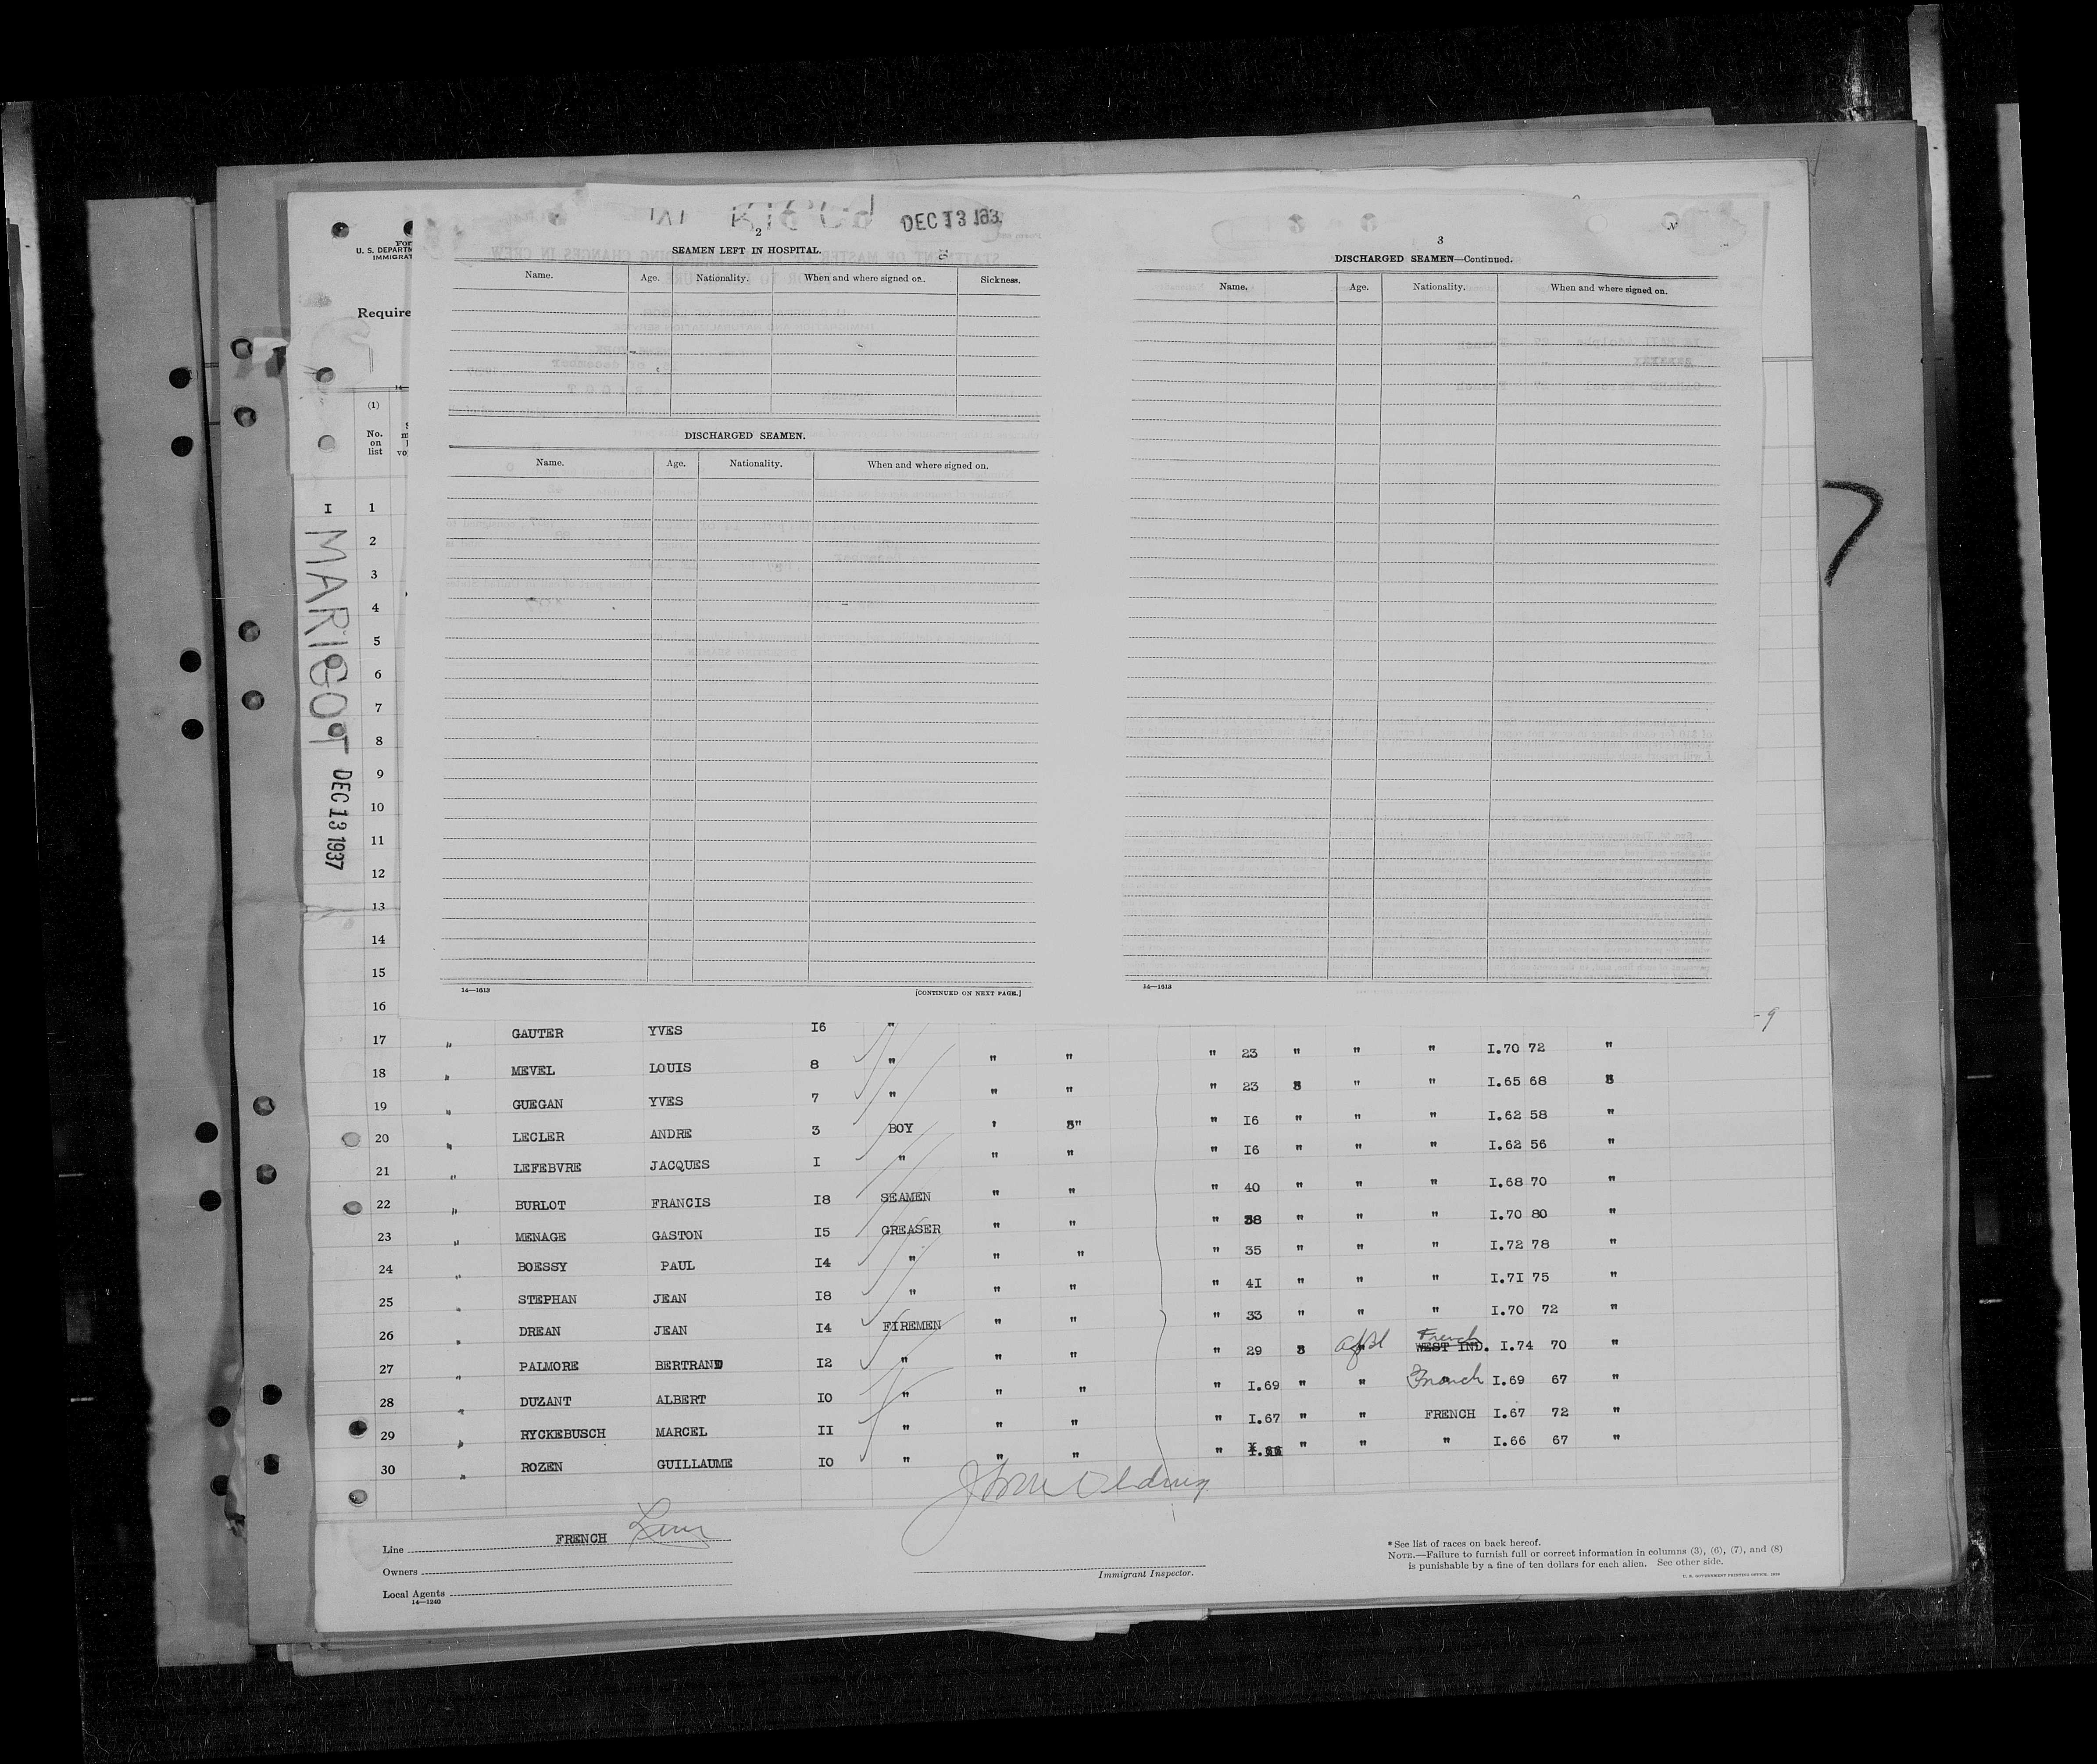 DEC 13 193
2
SEAMEN LEFT IN HOSPITAL.
Name. Age. Nationality. When and where signed on. Sickness.
DISCHARGED SEAMEN.
Name. Age. Nationality. When and where signed on.
14—1613 [CONTINUED ON NEXT PAGE.]
3
DISCHARGED SEAMEN—Continued.
Name. Age. Nationality. When and where signed on.
14—1613
U. S. DEPARTM
IMMIGRAT
Require
(1)
No. on list
I
MARIGOT DEC 13 1937
7
1
2
3
4
5
6
7
8
9
10
11
12
13
14
15
16
17 " GAUTER YVES I6 " " 23 " " " I.70 72 "
18 " MEVEL LOUIS 8 " " " " 23 " " " I.65 68 "
19 " GUEGAN YVES 7 " " " " I6 " " " I.62 58 "
20 " LECLER ANDRE 3 BOY ' " " I6 " " " I.62 56 "
21 " LEFEBVRE JACQUES I " " " " 40 " " " I.68 70 "
22 " BURLOT FRANCIS I8 SEAMEN " " " 38 " " " I.70 80 "
23 " MENAGE GASTON I5 GREASER " " " 35 " " " I.72 78 "
24 " BOESSY PAUL I4 " " " " 4I " " " I.7I 75 "
25 " STEPHAN JEAN I8 " " " " 33 " " " I.70 72 "
26 " DREAN JEAN I4 FIREMEN " " " 29 French WEST IND. I.74 70 "
27 " PALMORE BERTRAND I2 " " " " I.69 " " French I.69 67 "
28 " DUZANT ALBERT IO " " " " I.67 " " FRENCH I.67 72 "
29 " RYCKEBUSCH MARCEL II " " " " " " " I.66 67 "
30 " ROZEN GUILLAUME IO " " "
Line FRENCH Line
Owners
Local Agents
14—1240
Immigrant Inspector.
* See list of races on back hereof.
NOTE.—Failure to furnish full or correct information in columns (3), (6), (7), and (8)
is punishable by a fine of ten dollars for each alien. See other side.
U. S. GOVERNMENT PRINTING OFFICE